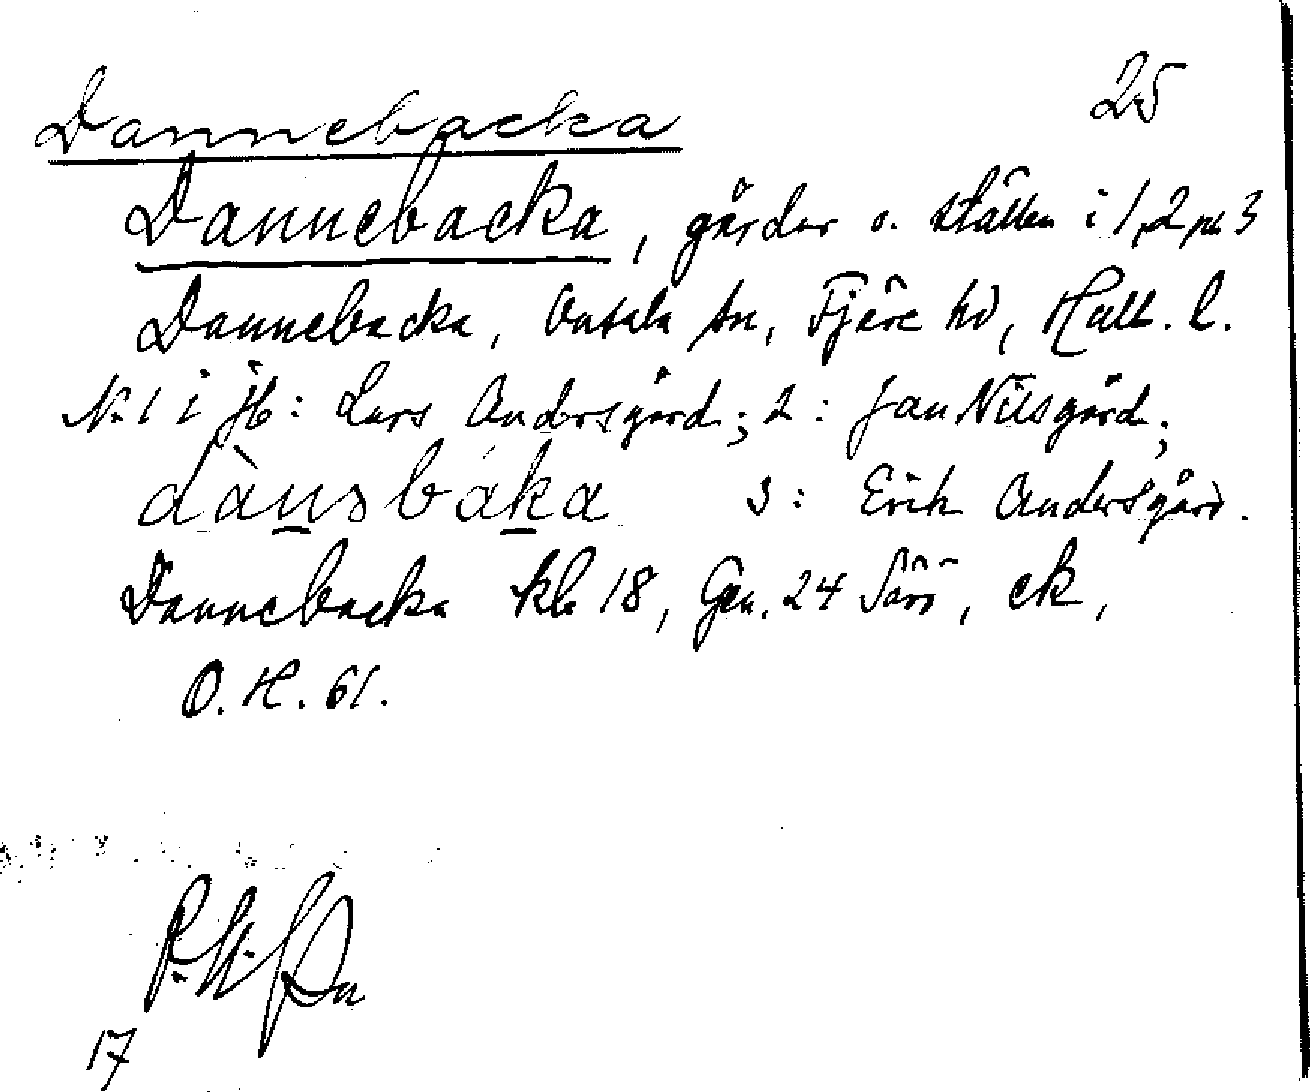 25
Dannebacka
Dannebacka, gårdar o. ställen i 1, 2 på 3
Dannebacka, Onsala sn, Fjäre hd, Hall. l.
N:r 1 i Jb: Lars Andersgård; 2: Jan Nilsgård;
dànsbáka 3: Erik Andersgård.
Dannebacka kb 18, Gen. 24 Särö, ek,
O. H. 61.
17